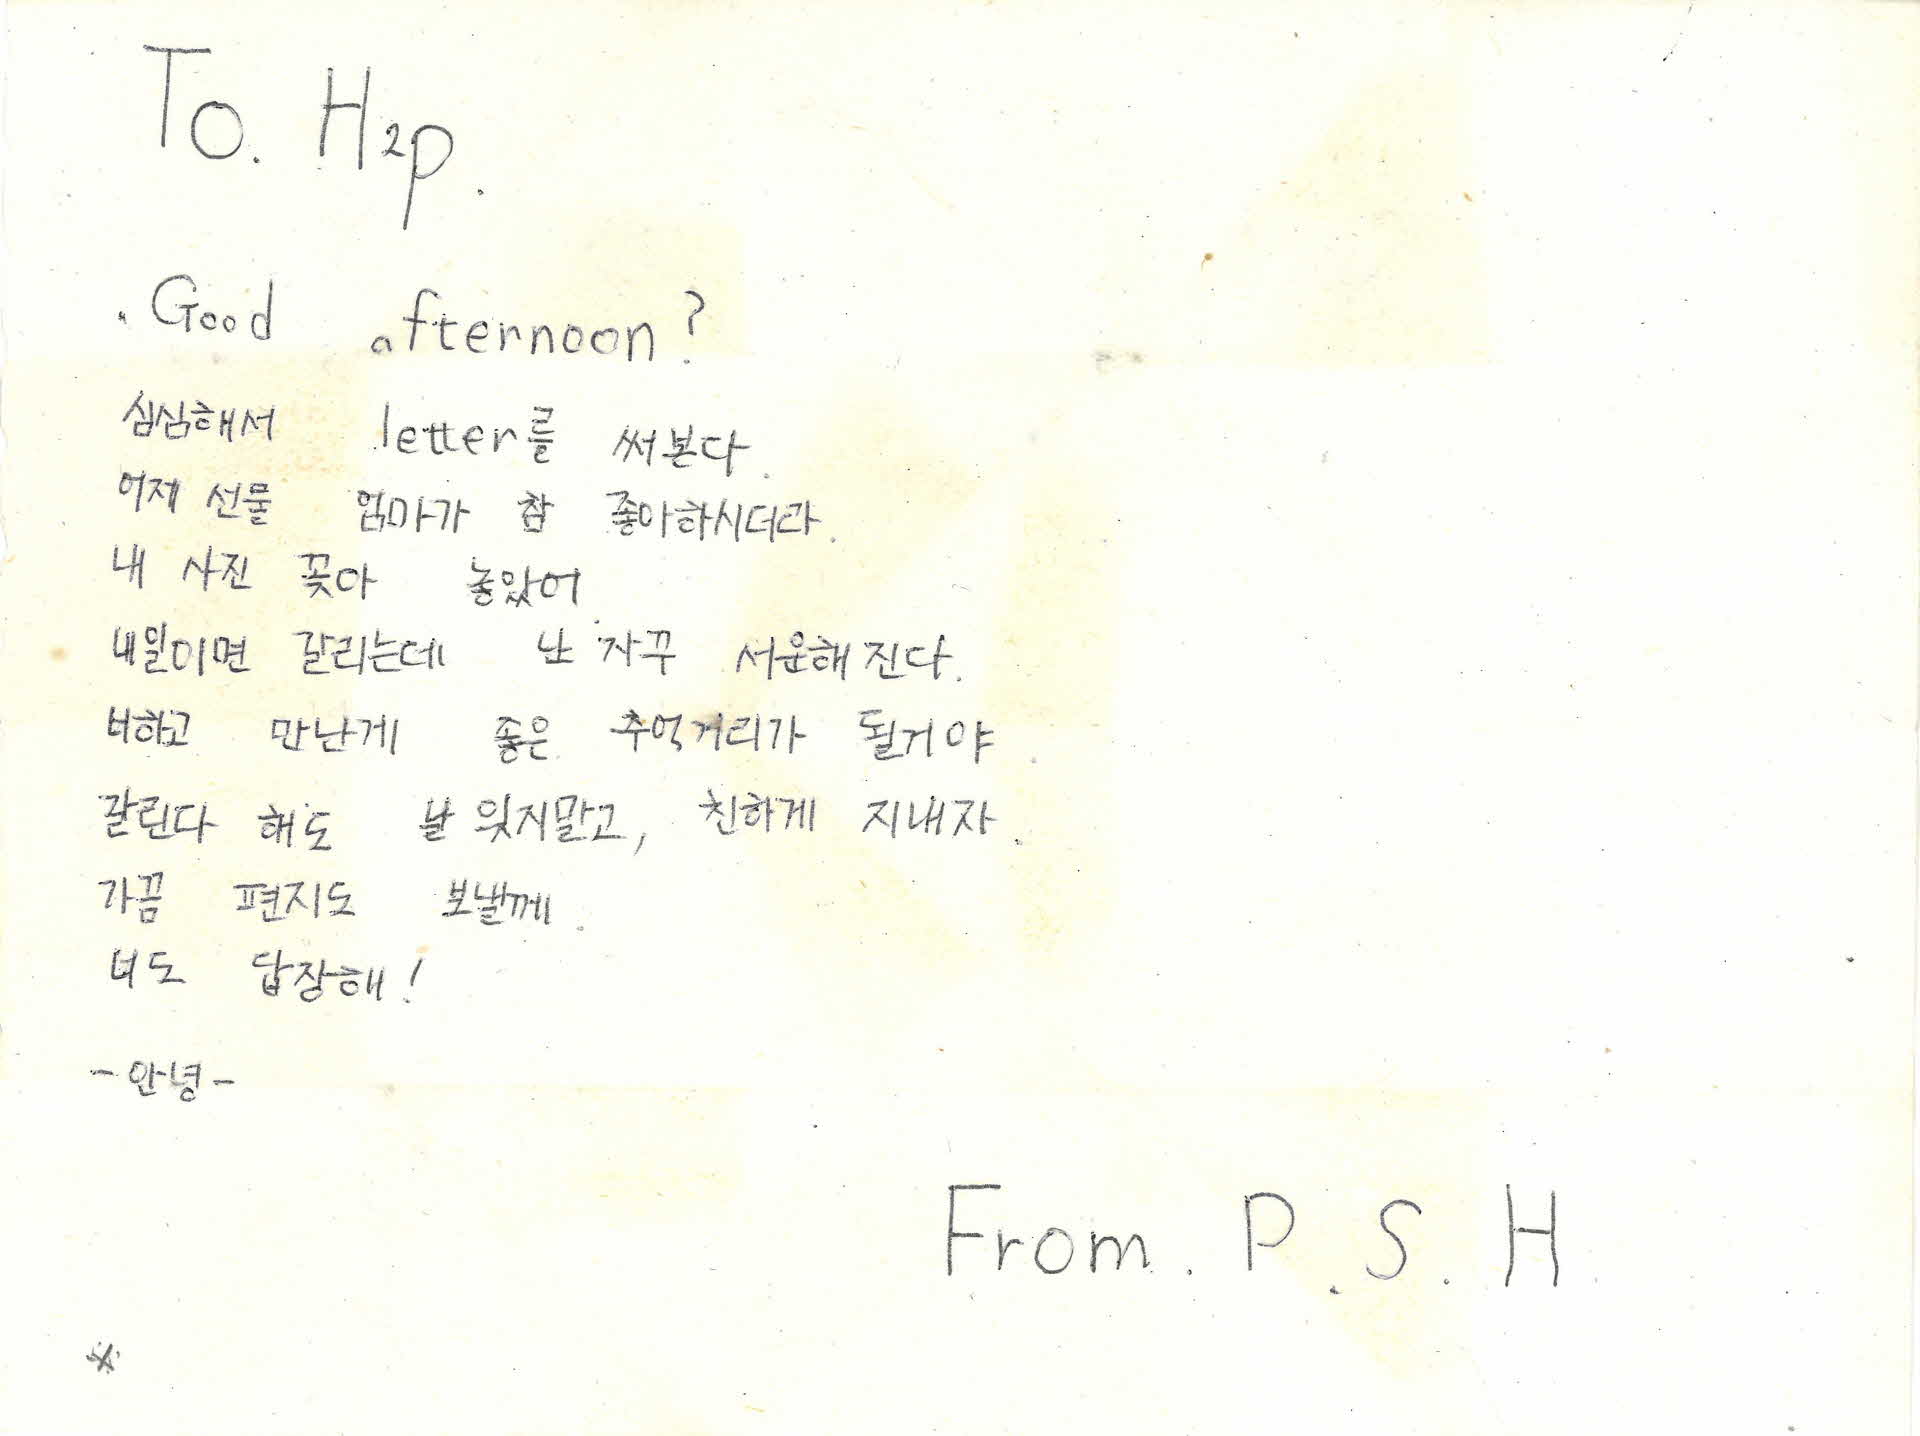 To. H2p.
Good afternoon?
심심해서 letter를 써본다.
어제 선물 엄마가 참 좋아하시더라.
내 사진 꽂아 놓았어.
내일이면 갈리는데 난 자꾸 서운해진다.
너하고 만난게 좋은 추억거리가 될거야.
갈린다 해도 날 잊지말고, 친하게 지내자.
가끔 편지도 보낼께.
너도 답장해!
-안녕-
From. P.S.H